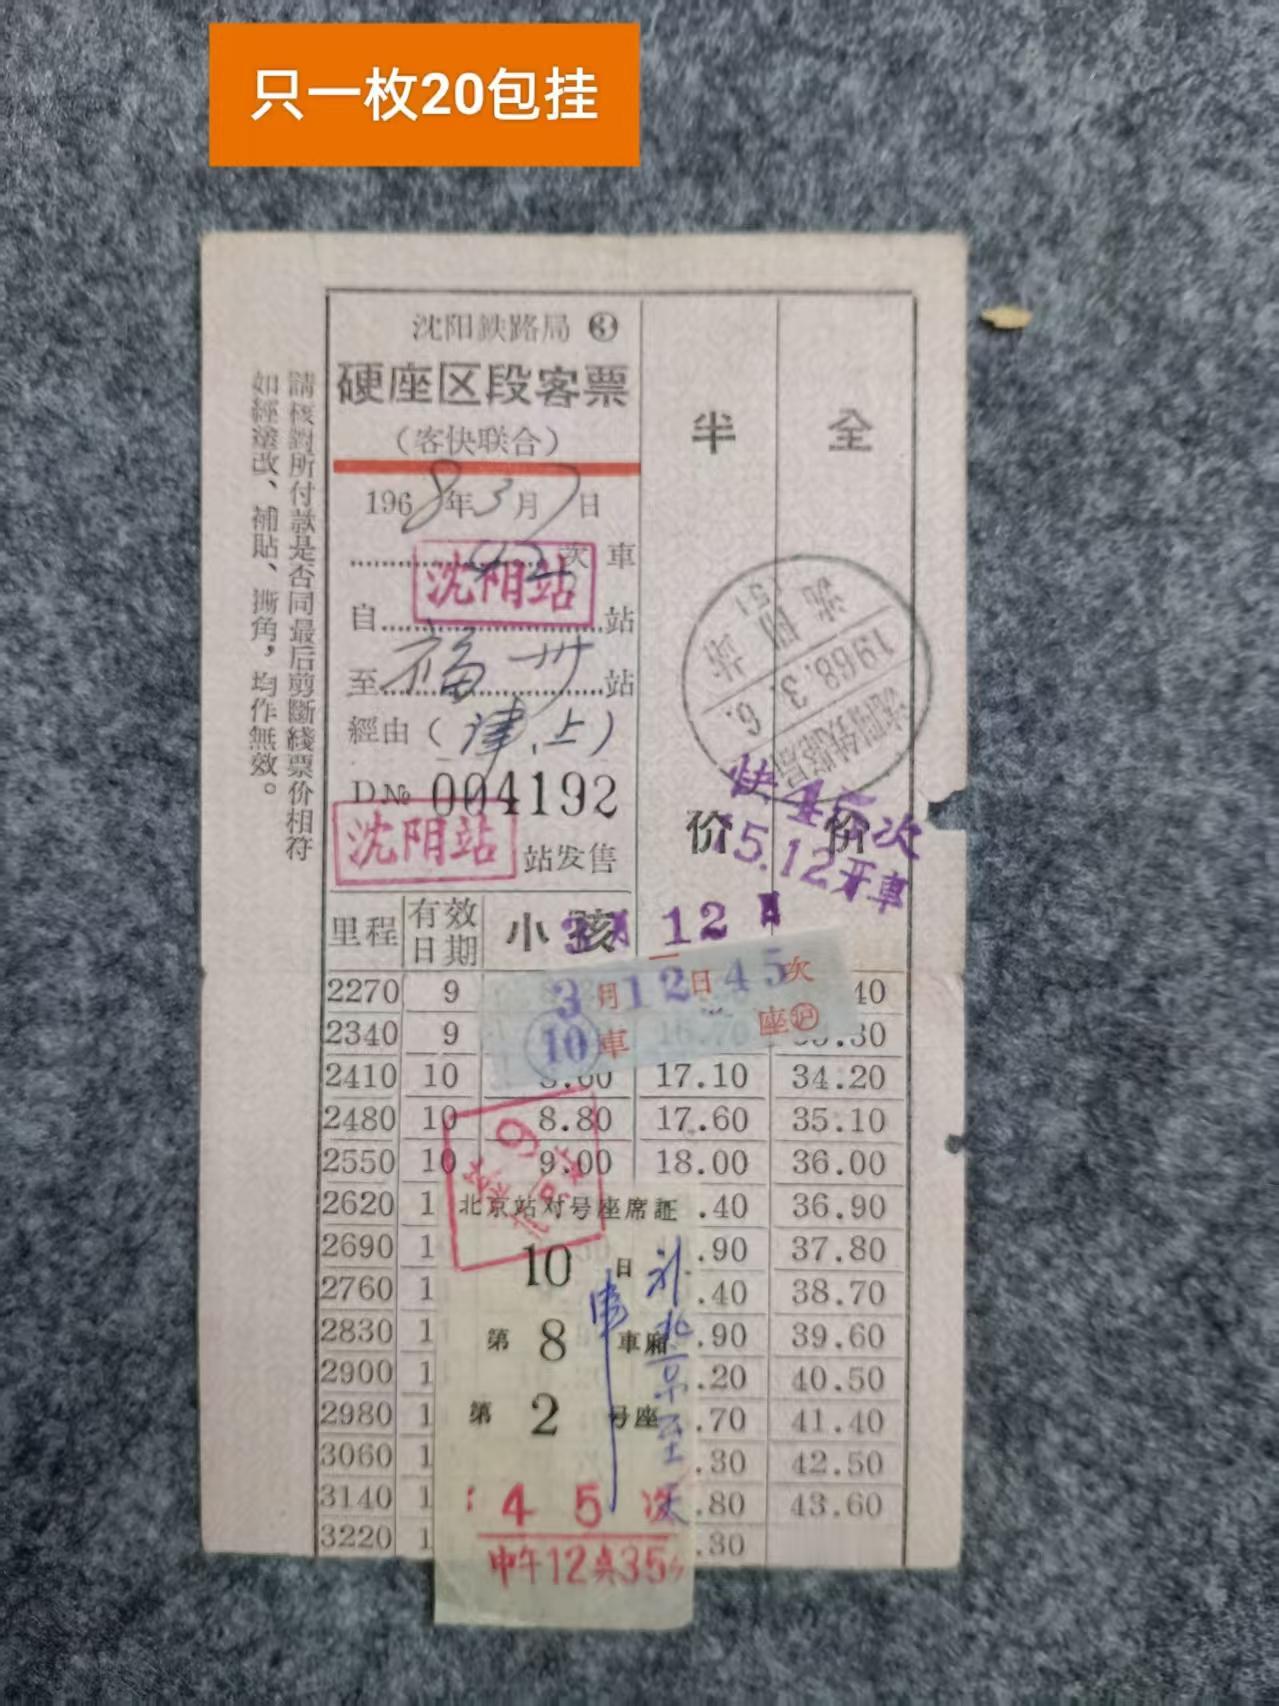 只一枚20包挂
請核對所付款是否同最后剪斷綫票价相符
如經塗改、補貼、撕角，均作無效。
沈阳鉄路局 ❸
硬座区段客票
（客快联合）
半 全
1968年3月7日
次車
沈阳站
自 站
至福州站
經由（津、上）
沈阳站
1968.3.6.
沈阳铁路局
DNo 004192
沈阳站 站发售
价 价
快45次
15.12开車
里程 有效日期 小孩
12
3月12日45次
10車 座沪
2270 9 40
2340 9 16.70 .30
2410 10 8.60 17.10 34.20
2480 10 8.80 17.60 35.10
2550 10 9.00 18.00 36.00
2620 1 .40 36.90
2690 1 .90 37.80
2760 1 .40 38.70
2830 1 .90 39.60
2900 1 .20 40.50
2980 1 .70 41.40
3060 1 .30 42.50
3140 1 .80 43.60
3220 1 .30
北京站对号座席証
10 日
第 8 車廂
第 2 号座
45次
中午12点35分